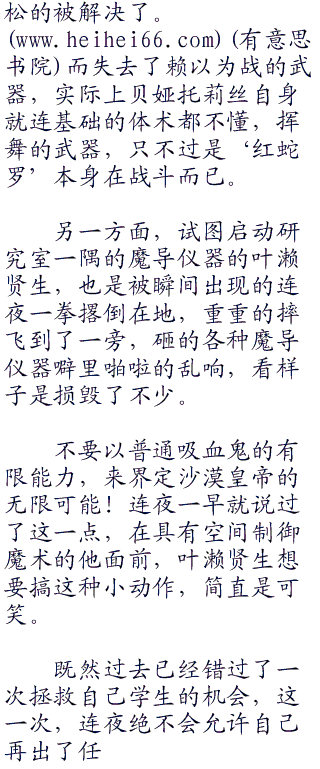 松的被解决了。
(www.heihei66.com)(有意思
书院)而失去了赖以为战的武
器，实际上贝娅托莉丝自身
就连基础的体术都不懂，挥
舞的武器，只不过是‘红蛇
罗’本身在战斗而已。
另一方面，试图启动研
究室一隅的魔导仪器的叶濑
贤生，也是被瞬间出现的连
夜一拳撂倒在地，重重的摔
飞到了一旁，砸的各种魔导
仪器噼里啪啦的乱响，看样
子是损毁了不少。
不要以普通吸血鬼的有
限能力，来界定沙漠皇帝的
无限可能！连夜一早就说过
了这一点，在具有空间制御
魔术的他面前，叶濑贤生想
要搞这种小动作，简直是可
笑。
既然过去已经错过了一
次拯救自己学生的机会，这
一次，连夜绝不会允许自己
再出了任